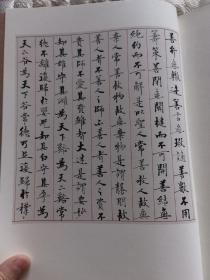 善行無轍迹善言無瑕謫善數不用
籌策善閉無關楗而不可開善結無
繩約而不可解是以聖人常善救
人常善救物故無棄物是謂襲明故
善人者不善人之師不善人者善人之資不
貴其師不愛其資雖智大迷是謂要妙
知其雄守其雌為天下谿為天下谿常
德不離復歸於嬰兒知其白守其辱為
天下谷為天下谷常德乃足復歸於樸